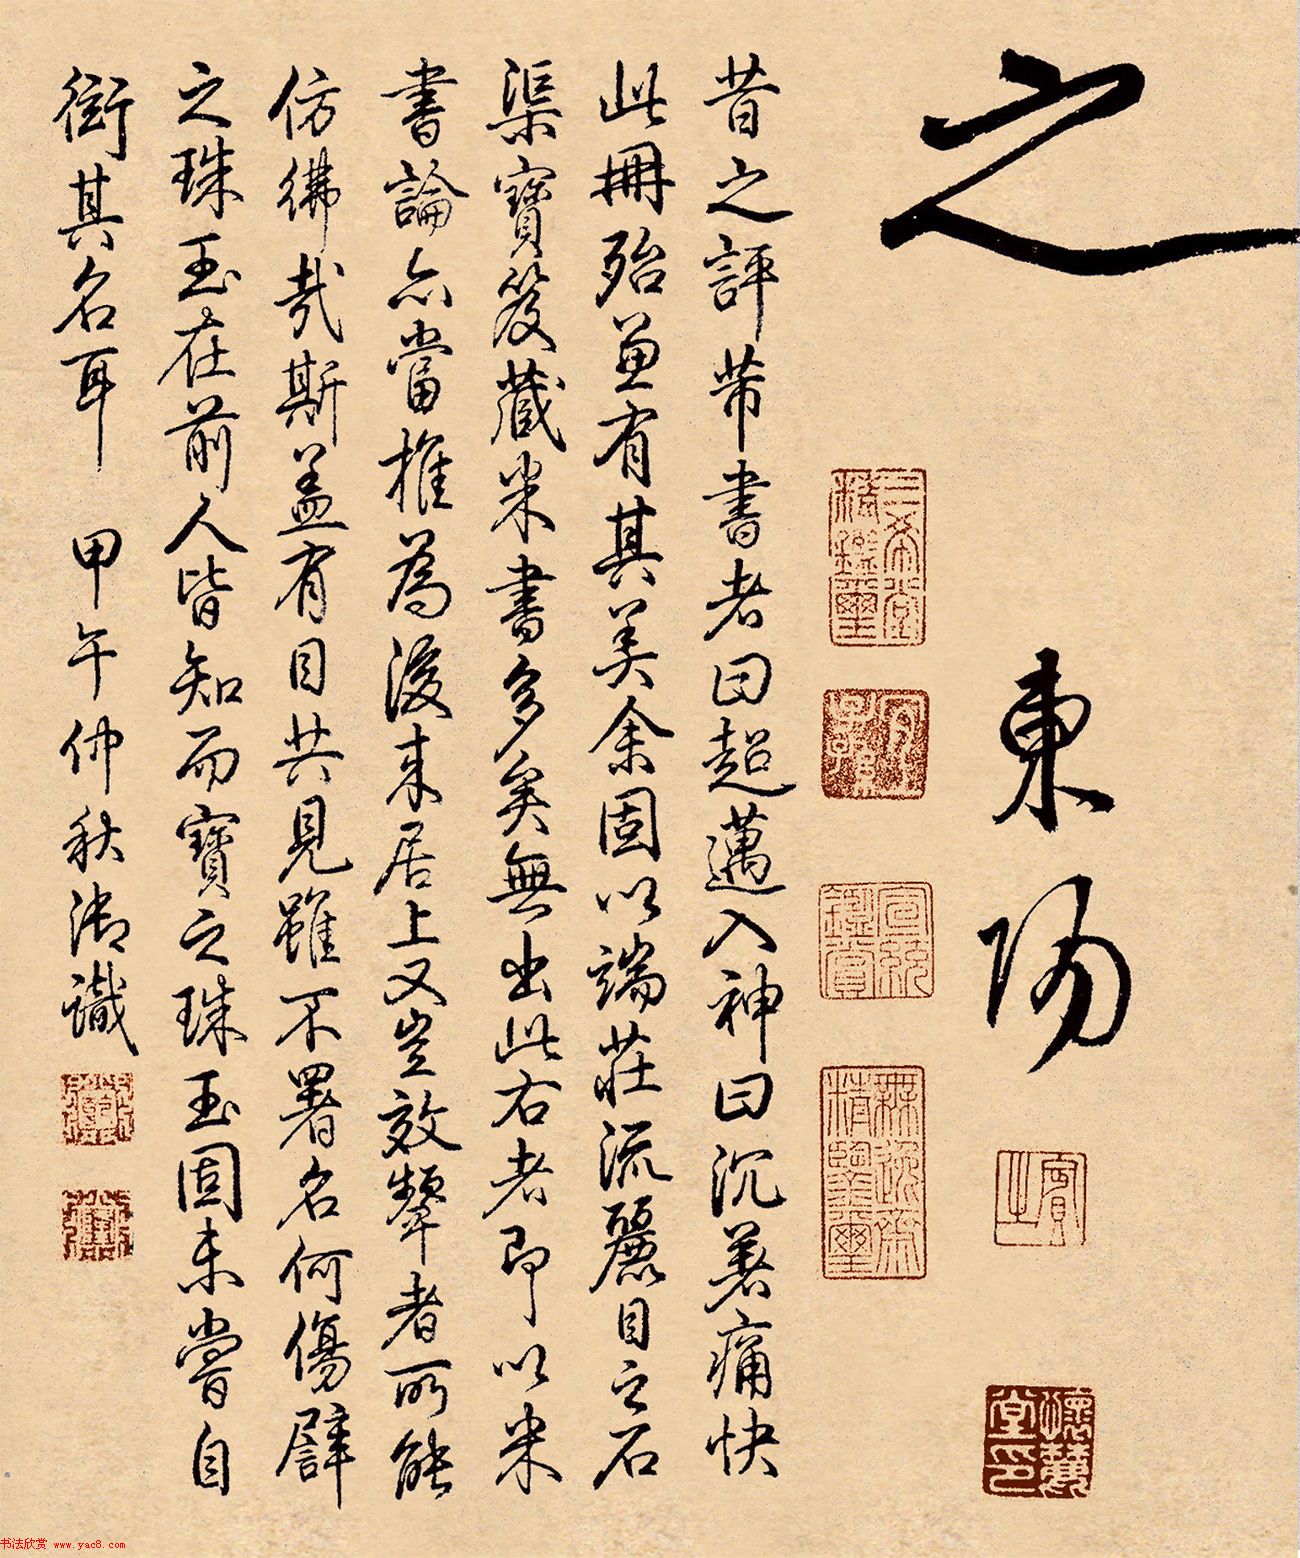 之
東陽
昔之評芾書者曰超邁入神曰沉著痛快
此冊殆兼有其美余固以端莊流麗目之石
渠寶笈藏米書多矣無出此右者即以米
書論亦當推為後来居上又豈效顰者所能
仿彿哉斯蓋有目共見雖不署名何傷譬
之珠玉在前人皆知而寶之珠玉固未嘗自
衒其名耳 甲午仲秋御識
三希堂精鑑璽
宜子孫
宣統鑑賞
無逸齋精鑒璽
寶
堂印
乾
隆
书法欣赏 www.yac8.com